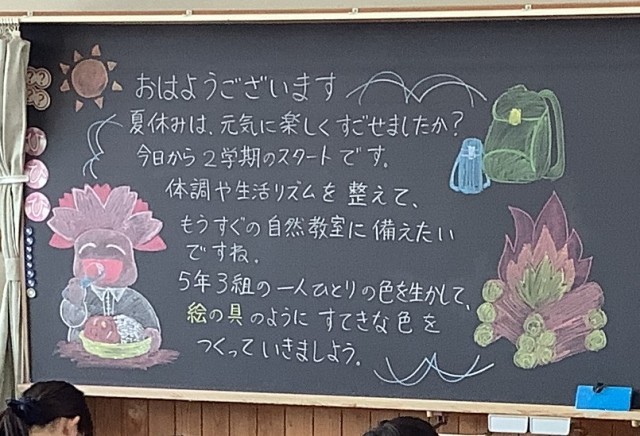 おはようございます
夏休みは、元気に楽しくすごせましたか？
今日から２学期のスタートです。
体調や生活リズムを整えて、
もうすぐの自然教室に備えたい
ですね。
５年３組の一人ひとりの色を生かして、
絵の具のようにすてきな色を
つくっていきましょう。
ひ
ひ
ひ